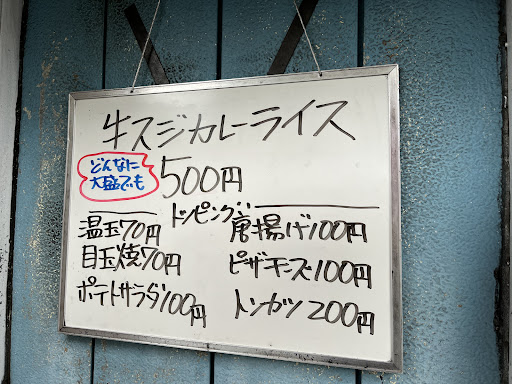 牛スジカレーライス
どんなに
大盛でも
500円
トッピング:
温玉70円
唐揚げ100円
目玉焼70円
ピザチーズ100円
ポテトサラダ100円
トンカツ200円